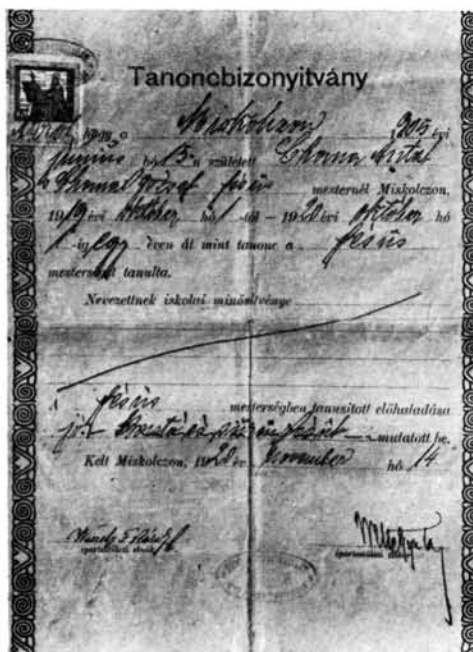 Tanoncbizonyitvány
hogy a Miskolczon 1905 évi
junius hó 15-n született Choma Antal
József fésüs mesternél Miskolczon,
1919 évi október hó 1-től – 1920 évi október hó
1-ig egy éven át mint tanonc a fésüs
mesterséget tanulta.
Nevezettnek iskolai minősitvénye
A fésüs mesterségben tanusított előhaladása
jó. mutatott be.
Kélt Miskolczon, 1920 év november hó 14.
ipartestületi elnök